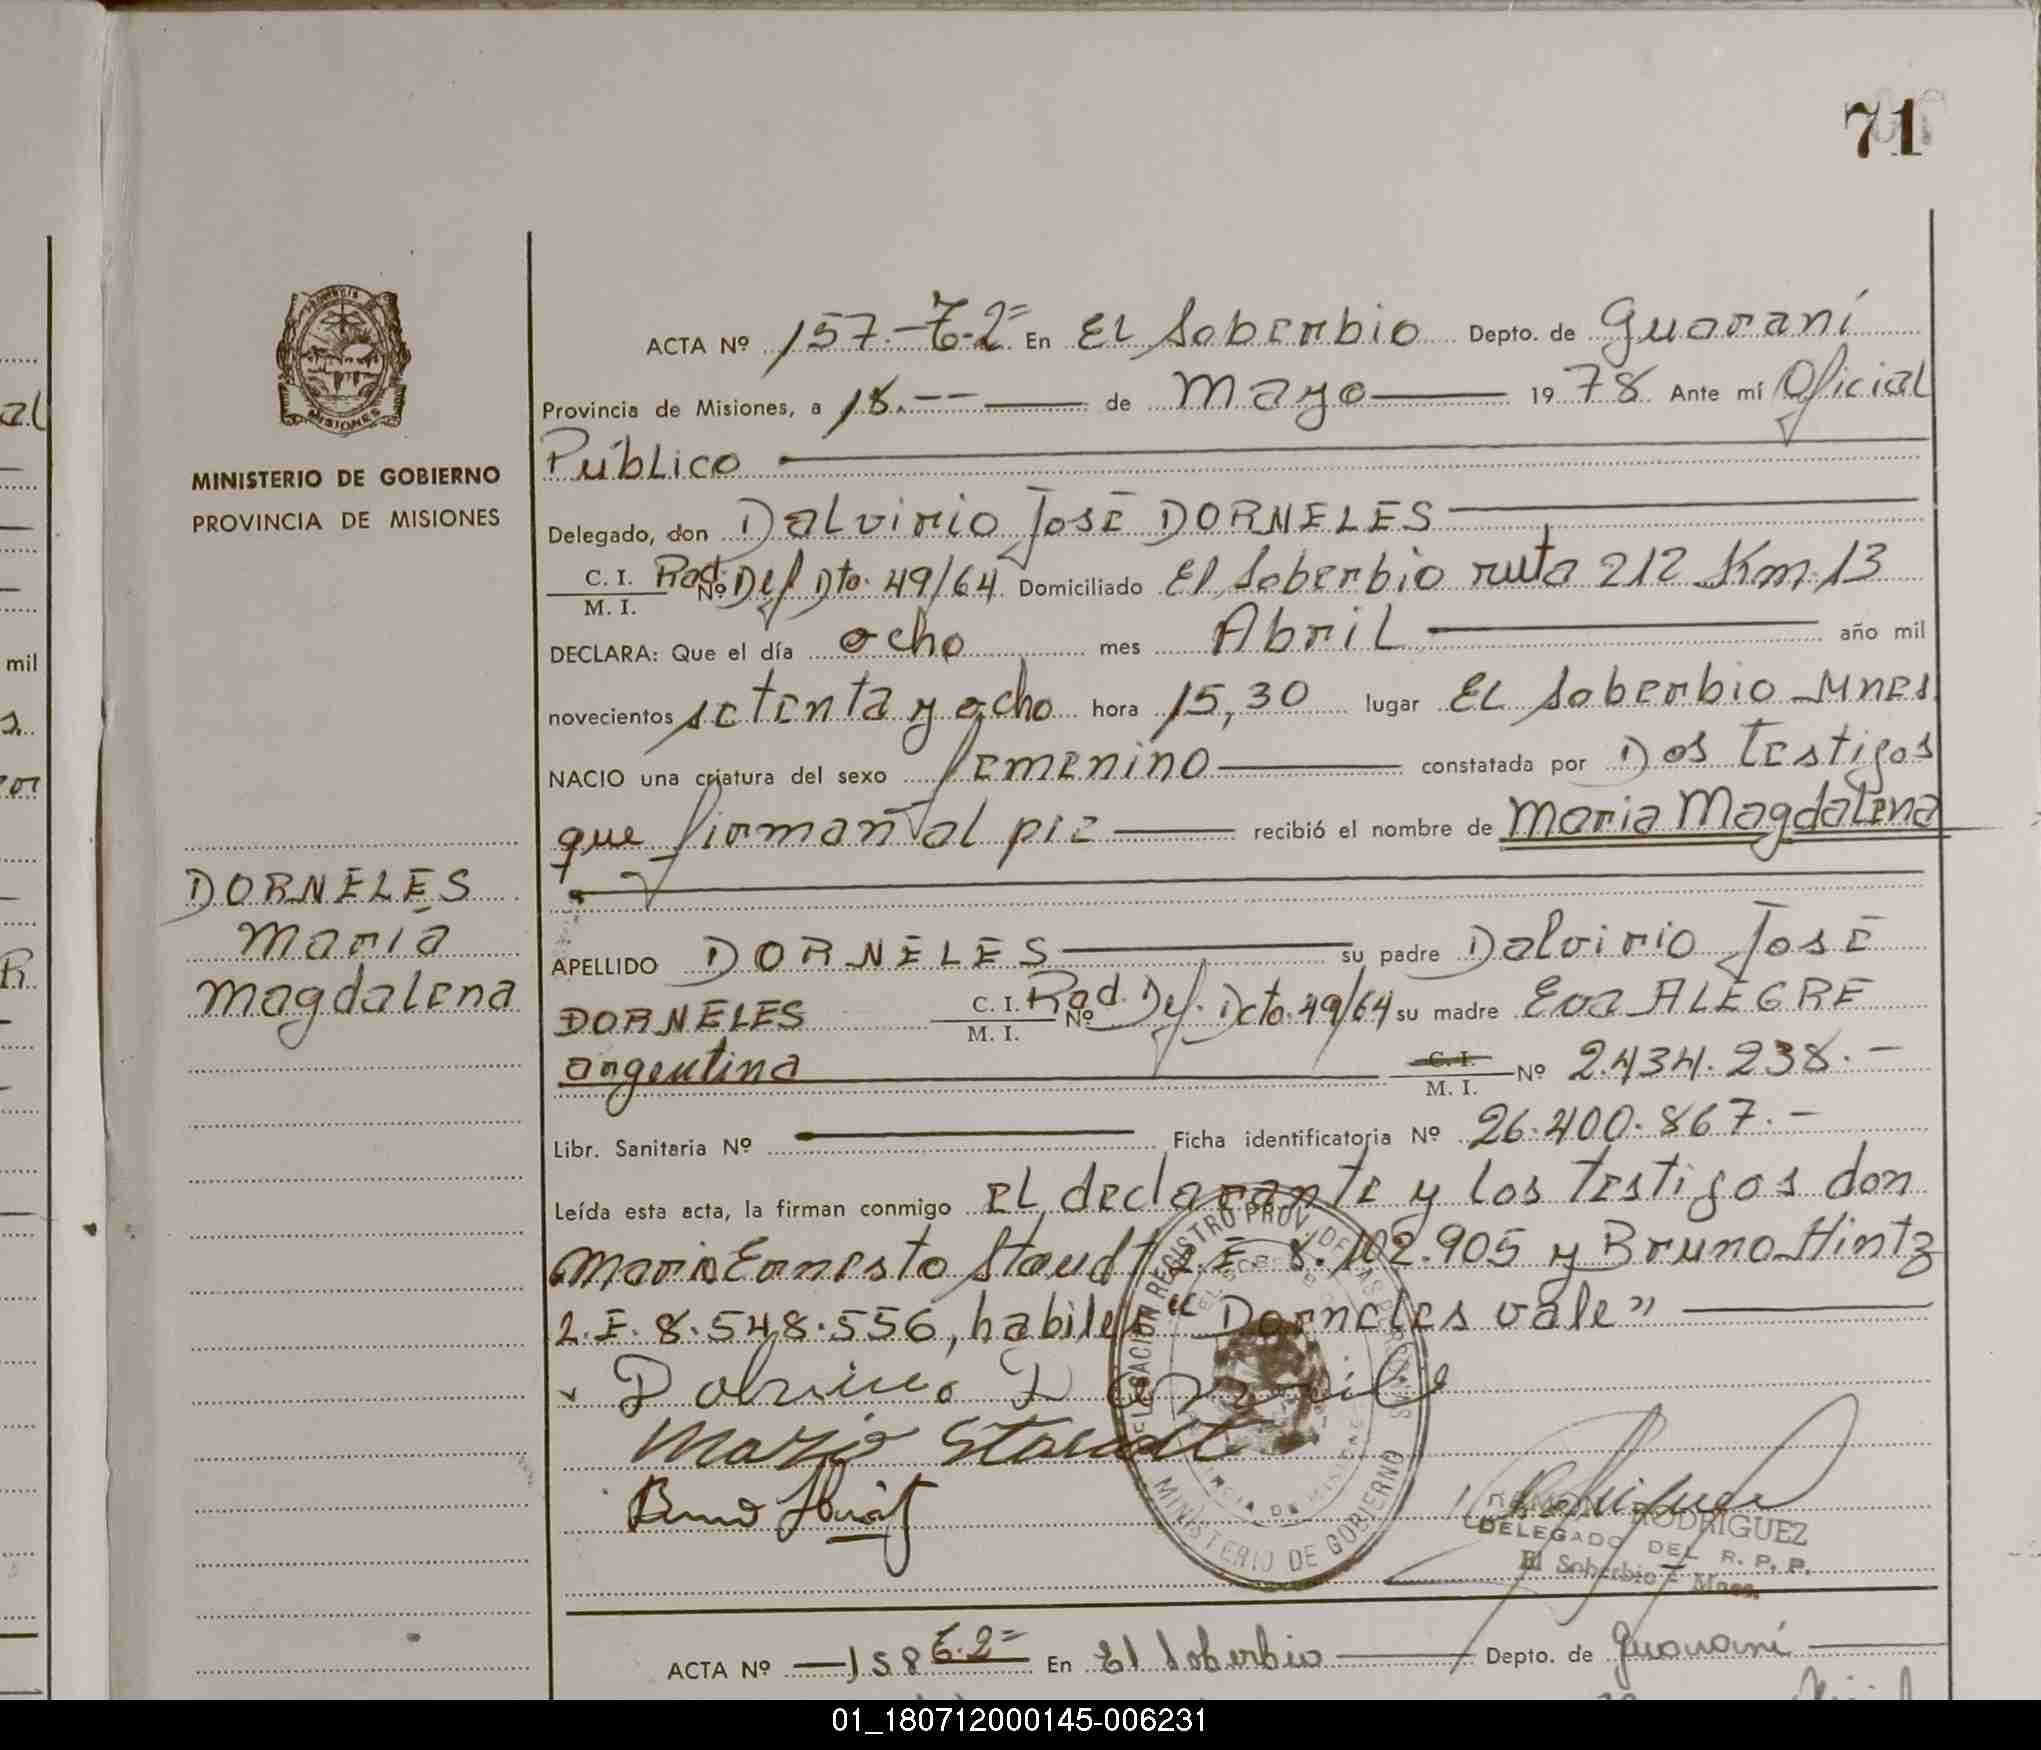 71
al
mil
MISIONES
MINISTERIO DE GOBIERNO
PROVINCIA DE MISIONES
DORNELES
María
Magdalena
ACTA Nº 157.-T.2º En El Soberbio Depto. de Guaraní
Provincia de Misiones, a 18.-- de Mayo 1978 Ante mí Oficial
Público
Delegado, don Dalvirio José DORNELES
C. I. M. I. Nº Rad. Def Dto. 49/64 Domiciliado El Soberbio ruta 212 Km. 13
DECLARA: Que el día ocho mes Abril año mil
novecientos setenta y ocho hora 15,30 lugar El Soberbio Mnes.
NACIO una criatura del sexo femenino constatada por Dos testigos
que firman al pie recibió el nombre de María Magdalena
APELLIDO DORNELES su padre Dalvirio José
DORNELES C. I. M. I. Nº Rad. Def. Dcto. 49/64 su madre Eva ALEGRE
argentina C. I. M. I. Nº 2.434.238.-
Libr. Sanitaria Nº Ficha identificatoria Nº 26.400.867.-
Leída esta acta, la firman conmigo el declarante y los testigos don
Mario Ernesto Staudt L.E. 8.102.905 y Bruno Hintz
L.E. 8.548.556, habiles "Dorneles vale"
Mario Staudt
Bruno
MINISTERIO DE GOBIERNO
RAMON RODRIGUEZ
DELEGADO DEL R. P. P.
El Soberbio - Mnes.
ACTA Nº 158 T.2º En El Soberbio Depto. de Guaraní
01_180712000145-006231